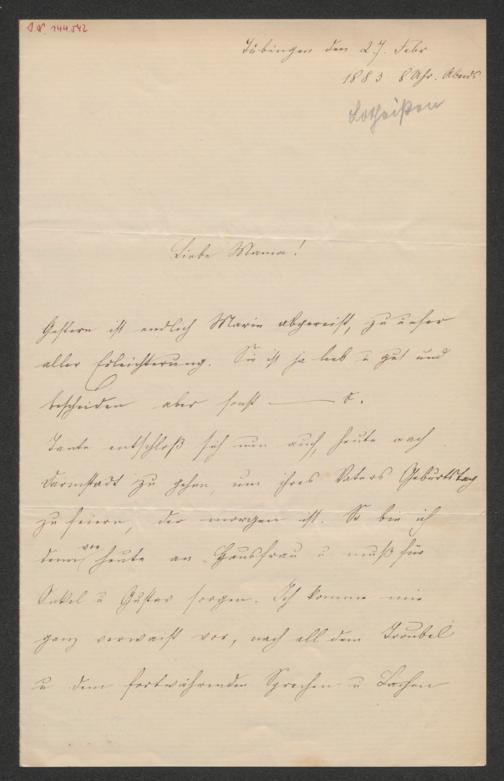 I.N. 144.542
Tübingen den 27. Febr
1883 8 Uhr. Abends
Lotheißen
Liebe Mama!
Gestern ist endlich Marie abgereist, zu unser
aller Erleichterung. Sie ist ja lieb u gut und
bescheiden aber sonst — 0.
Tante entschloß sich nun auch, heute nach
Darmstadt zu gehen, um ihres Vaters Geburtstag
zu feiern, der morgen ist. So bin ich
denn von heute an Hausfrau u muß für
Onkel u Gustav sorgen. Ich komme mir
ganz verwaist vor, nach all dem Troubel
u dem fortwährenden Sprechen u Lachen